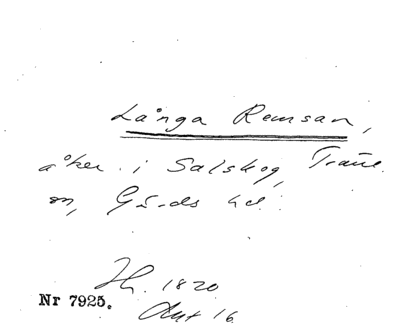 Långa Remsan,
åker i Salskog, Träne
sn, Gärds hd.
Hh. 1820
Nr 7925.
Akt 16